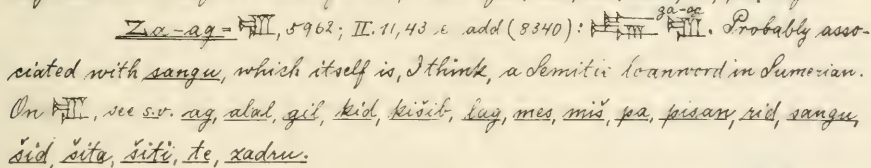 Za-ag = 𒋃, 5962; II. 11, 43 c add (8340): za-ac 𒋃. Probably asso-
ciated with sangu, which itself is, I think, a Semitic loanword in Sumerian.
On 𒋃, see s.v. ag, alal, gil, kid, kišib, lag, mes, miš, pa, pisan, rid, sangu,
šid, šita, šiti, te, zadru.